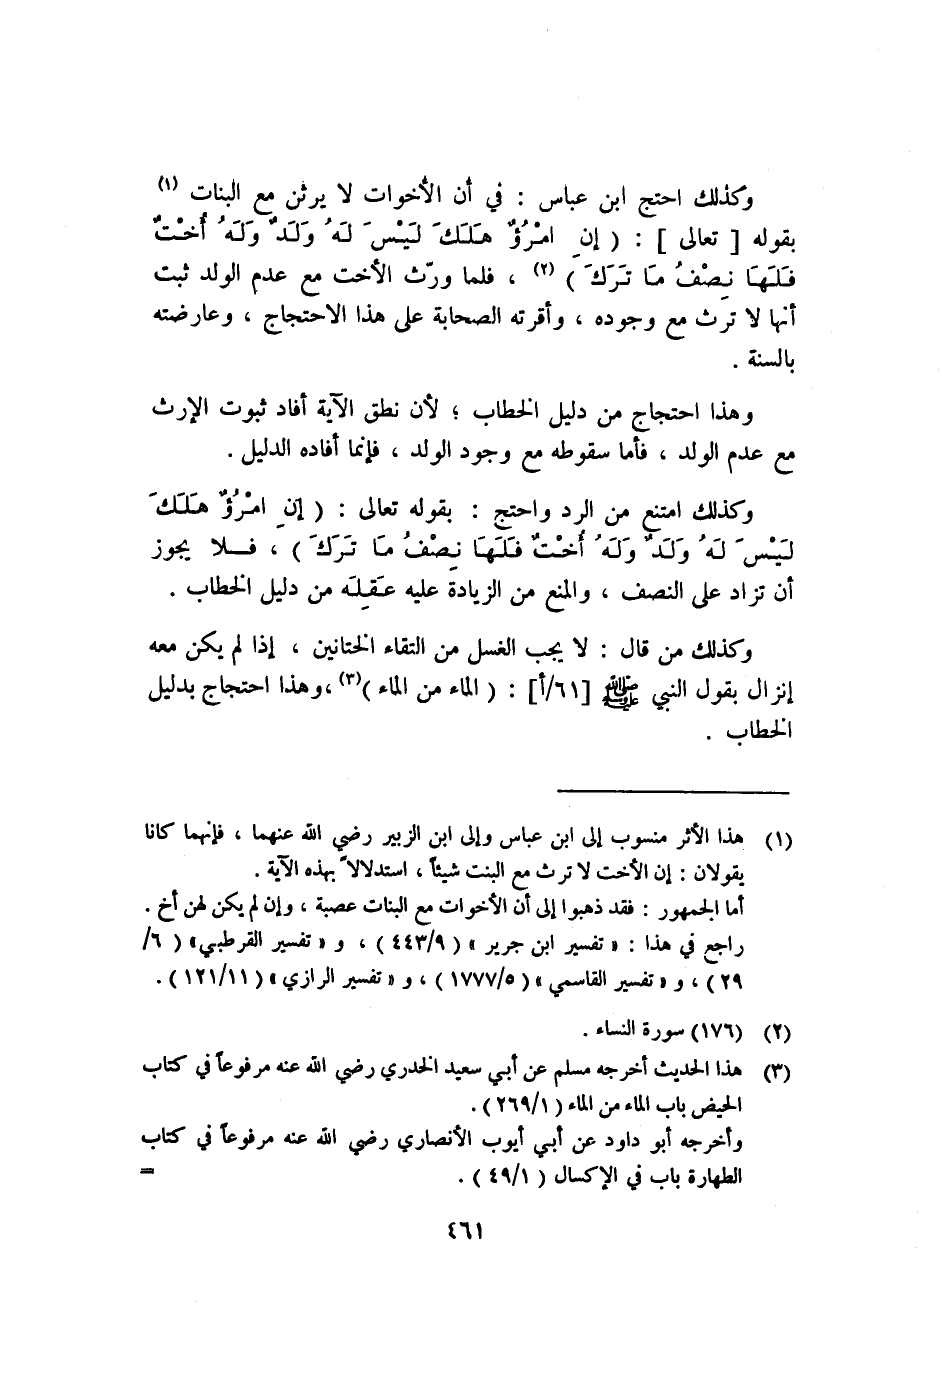 وكذلك احتج ابن عباس : في أن الأخوات لا يرثن مع البنات (١)
بقوله [ تعالى ] : ( إِنِ امْرُؤٌ هَلَكَ لَيْسَ لَهُ وَلَدٌ وَلَهُ أُخْتٌ
فَلَهَا نِصْفُ مَا تَرَكَ ) (٢) ، فلما ورّث الأخت مع عدم الولد ثبت
أنها لا ترث مع وجوده ، وأقرته الصحابة على هذا الاحتجاج ، وعارضته
بالسنة .
وهذا احتجاج من دليل الخطاب ؛ لأن نطق الآية أفاد ثبوت الإرث
مع عدم الولد ، فأما سقوطه مع وجود الولد ، فإنما أفاده الدليل .
وكذلك امتنع من الرد واحتج : بقوله تعالى : ( إِنِ امْرُؤٌ هَلَكَ
لَيْسَ لَهُ وَلَدٌ وَلَهُ أُخْتٌ فَلَهَا نِصْفُ مَا تَرَكَ ) ، فـلا يجوز
أن تزاد على النصف ، والمنع من الزيادة عليه عَقِلَه من دليل الخطاب .
وكذلك من قال : لا يجب الغسل من التقاء الختانين ، إذا لم يكن معه
إنزال بقول النبي ﷺ [٦١/أ] : ( الماء من الماء )(٣) ،وهذا احتجاج بدليل
الخطاب .
(١) هذا الأثر منسوب إلى ابن عباس وإلى ابن الزبير رضي الله عنهما ، فإنهما كانا
يقولان : إن الأخت لا ترث مع البنت شيئاً ، استدلالاً بهذه الآية .
أما الجمهور : فقد ذهبوا إلى أن الأخوات مع البنات عصبة ، وإن لم يكن لهن أخ .
راجع في هذا : « تفسير ابن جرير » ( ٤٤٣/٩ ) ، و « تفسير القرطبي» ( ٦/
٢٩ ) ، و « تفسير القاسمي » ( ١٧٧٧/٥ ) ، و « تفسير الرازي » ( ١٢١/١١ ) .
(٢) (١٧٦) سورة النساء .
(٣) هذا الحديث أخرجه مسلم عن أبي سعيد الخدري رضي الله عنه مرفوعاً في كتاب
الحيض باب الماء من الماء ( ٢٦٩/١ ) .
وأخرجه أبو داود عن أبي أيوب الأنصاري رضي الله عنه مرفوعاً في كتاب
الطهارة باب في الإكسال ( ٤٩/١ ) . =
٤٦١